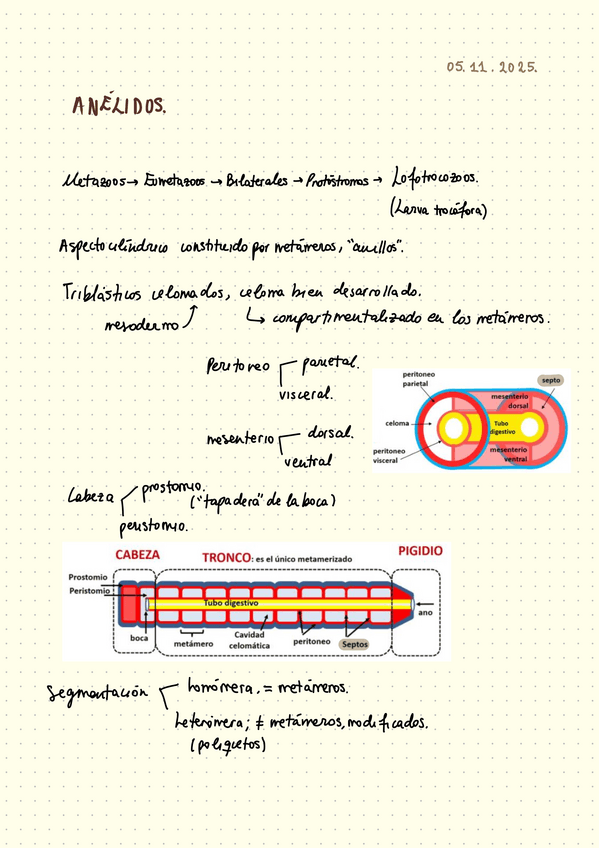 05.11.2025.
ANÉLIDOS.
Metazoos → Eumetazoos → Bilaterales → Protóstromos → Lofotrocozoos.
(Larva trocófora)
Aspecto cilíndrico constituido por metámeros, "anillos".
Triblásticos celomados, celoma bien desarrollado.
mesodermo
↳ compartimentalizado en los metámeros.
Peritoneo
parietal.
visceral.
mesenterio
dorsal.
ventral
peritoneo parietal
septo
mesenterio dorsal
celoma
Tubo digestivo
peritoneo visceral
mesenterio ventral
Cabeza
prostomio.
("tapadera" de la boca)
peristomio.
CABEZA
TRONCO: es el único metamerizado
PIGIDIO
Prostomio
Peristomio
Tubo digestivo
boca
metámero
Cavidad celomática
peritoneo
Septos
ano
Segmentación
homómera. = metámeros.
heterómera; ≠ metámeros, modificados.
(poliquetos)